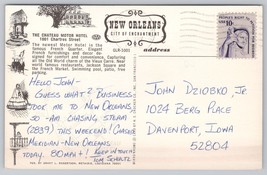 THE CHATEAU MOTOR HOTEL
1001 Chartres Street
The newest Motor Hotel in the
famous French Quarter. Elegant
French furnishings and decor
designed for complete comfort. Capturing
all the Old World charm of the Vieux Carre. Near
world famous restaurants, Jackson Square and
the French Market. Swimming pool, patio, free
parking.
NEW ORLEANS
CITY OF ENCHANTMENT
address
HELLO JOHN-
GUESS WHAT? BUSINESS
TOOK ME TO NEW ORLEANS
SO - AM CHASING STEAM
(2839) THIS WEEKEND! CHASED
MERIDIAN - NEW ORLEANS
TODAY, 80 MPH! KEEP IN TOUCH
TOM SCHULTZ
JOHN DZIOBKO, JR
1024 BERG PLACE
DAVENPORT, IOWA
52804